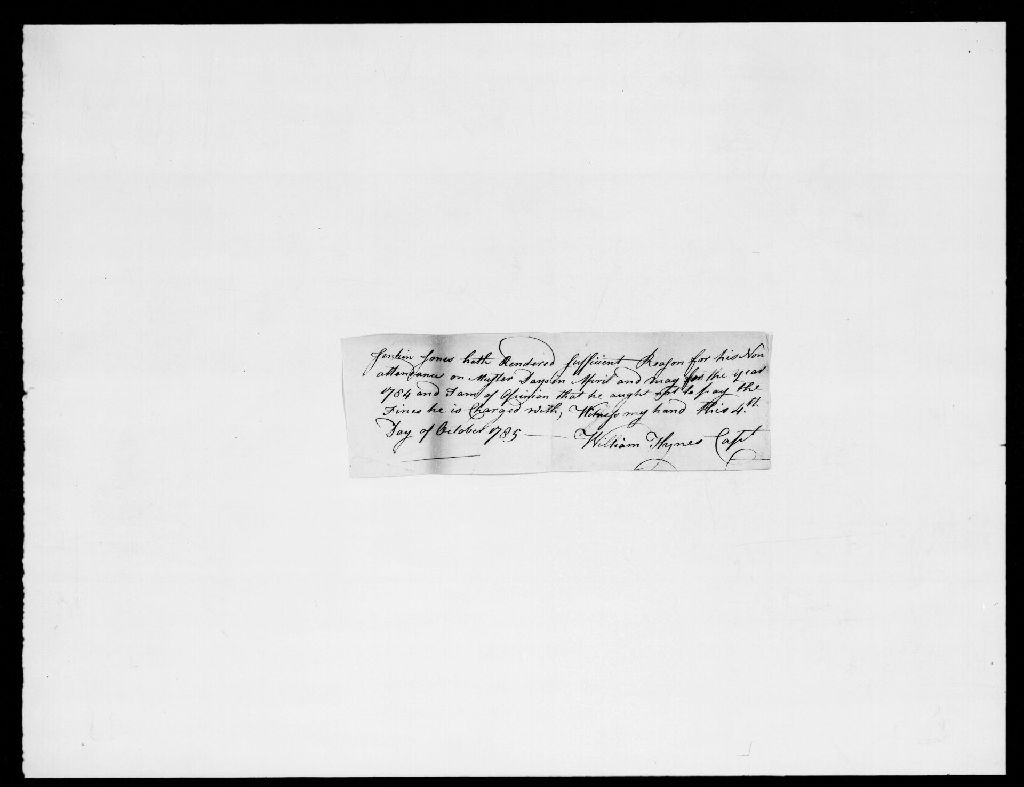 Jenkin Jones hath Rendered Sufficient Reason for his Non
attendance on Muster Days in Apiril and may for the year
1784 and I am of Opinion that he aught not to pay the
Fines he is Charged with, Witness my hand this 4th
Day of October 1785
William Hynes Capt